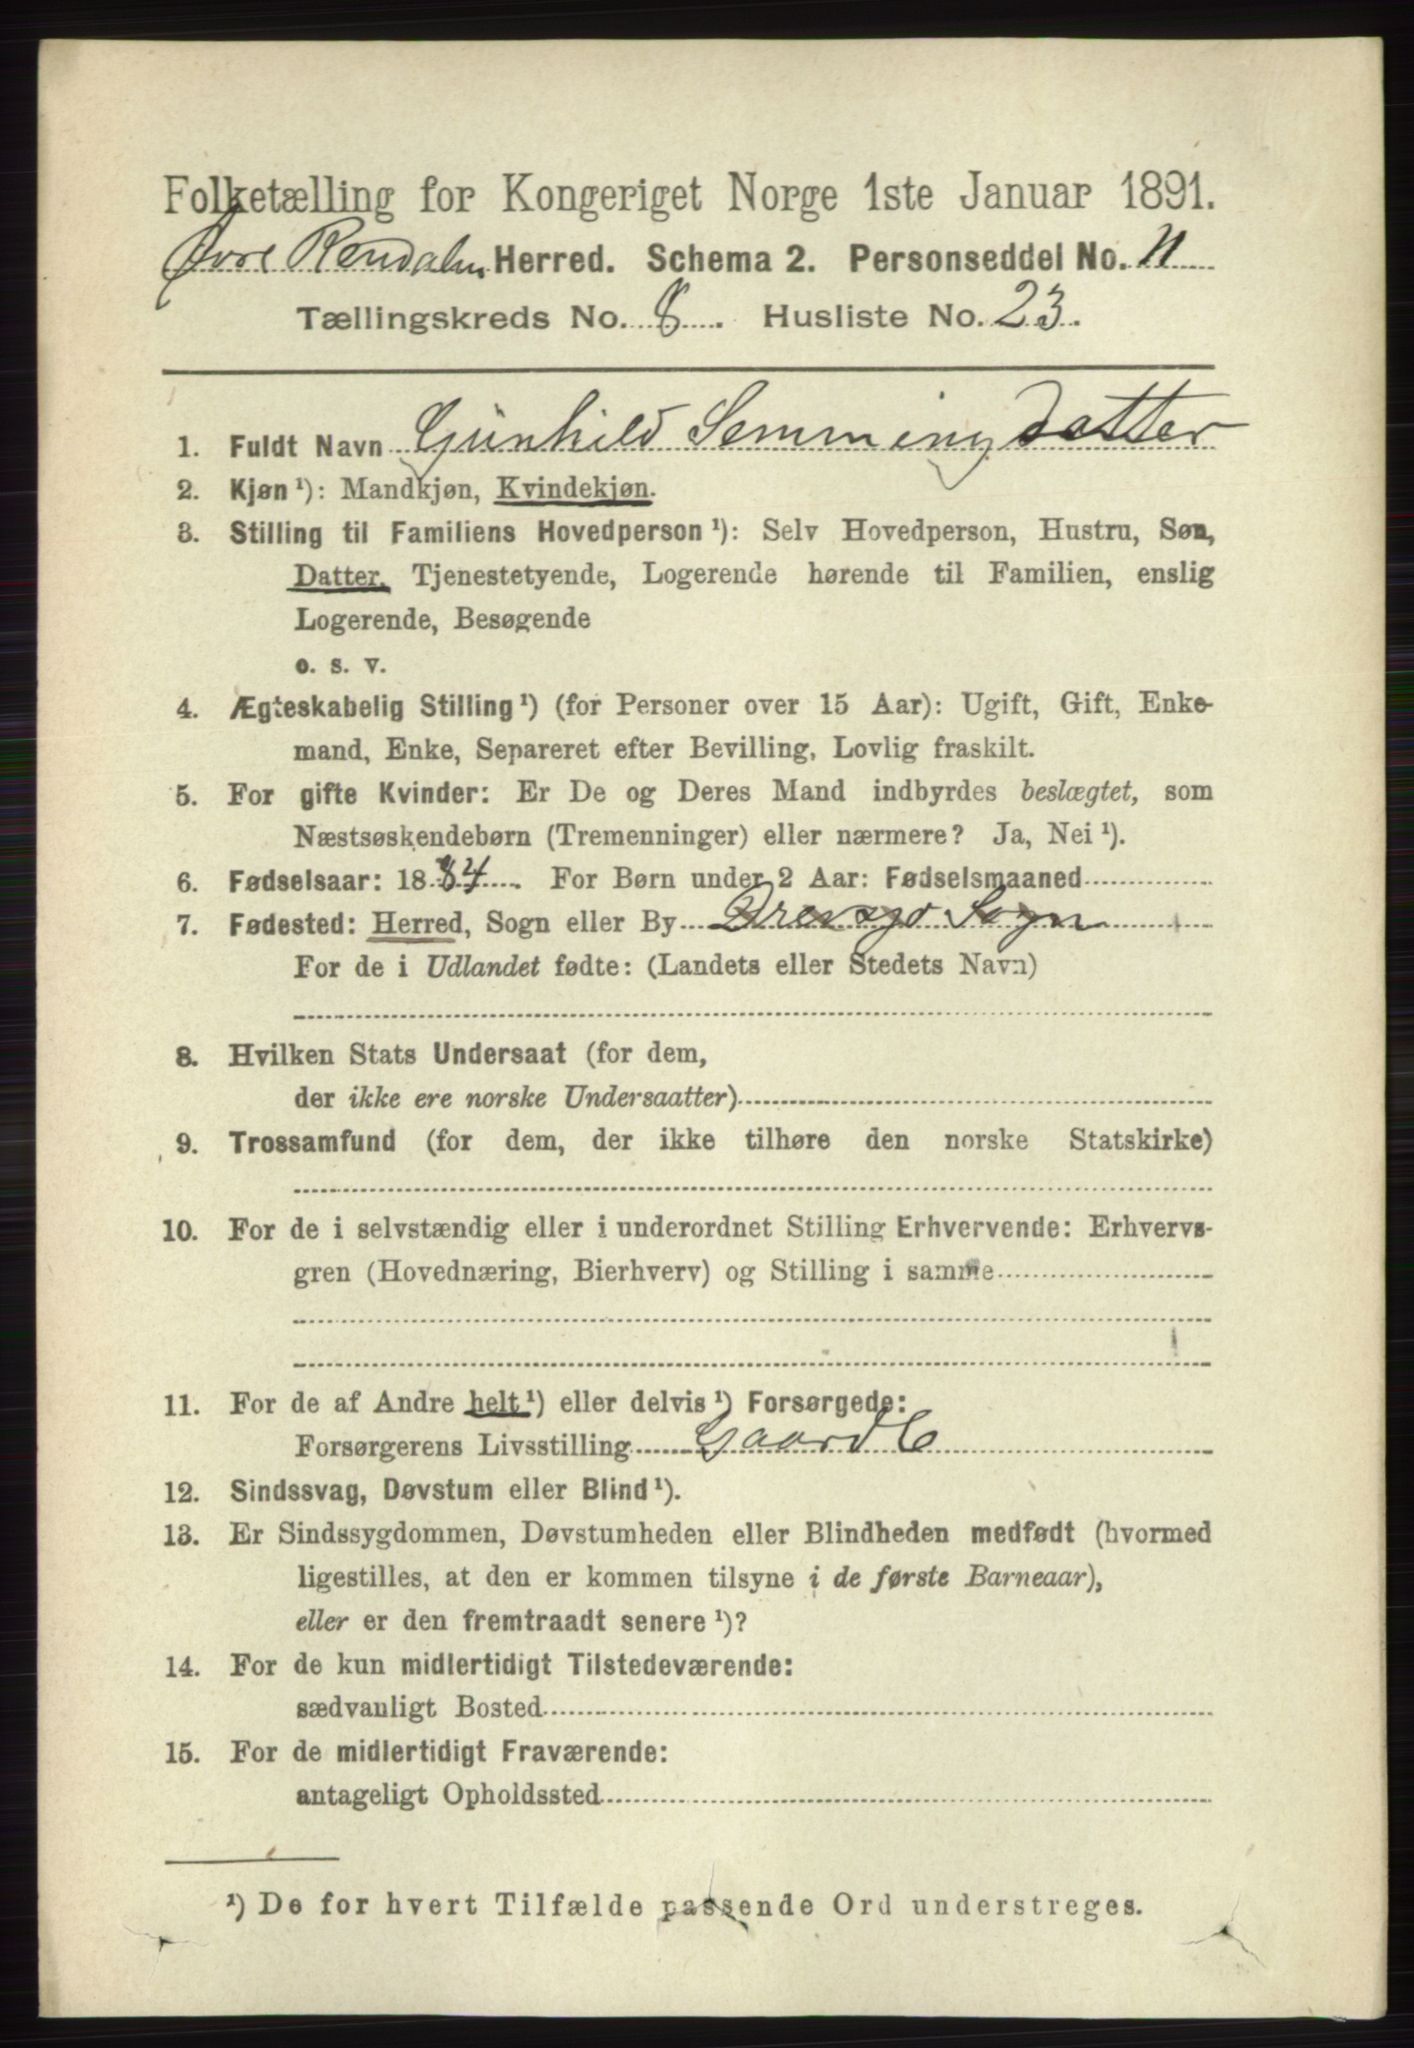 Folketælling for Kongeriget Norge 1ste Januar 1891.
Øvre Rendalen Herred. Schema 2. Personseddel No. 11
Tællingskreds No. 8. Husliste No. 23.
1. Fuldt Navn Gunhild Semmingdatter
2. Kjøn ¹): Mandkjøn, Kvindekjøn.
3. Stilling til Familiens Hovedperson ¹): Selv Hovedperson, Hustru, Søn,
Datter, Tjenestetyende, Logerende hørende til Familien, enslig
Logerende, Besøgende
o. s. v.
4. Ægteskabelig Stilling ¹) (for Personer over 15 Aar): Ugift, Gift, Enke-
mand, Enke, Separeret efter Bevilling, Lovlig fraskilt.
5. For gifte Kvinder: Er De og Deres Mand indbyrdes beslægtet, som
Næstsøskendebørn (Tremenninger) eller nærmere? Ja, Nei ¹).
6. Fødselsaar: 1884. For Børn under 2 Aar: Fødselsmaaned
7. Fødested: Herred, Sogn eller By Drevsjø Sogn
For de i Udlandet fødte: (Landets eller Stedets Navn)
8. Hvilken Stats Undersaat (for dem,
der ikke ere norske Undersaatter)
9. Trossamfund (for dem, der ikke tilhøre den norske Statskirke)
10. For de i selvstændig eller i underordnet Stilling Erhvervende: Erhvervs-
gren (Hovednæring, Bierhverv) og Stilling i samme
11. For de af Andre helt ¹) eller delvis ¹) Forsørgede:
Forsørgerens Livsstilling Gaardb
12. Sindssvag, Døvstum eller Blind ¹).
13. Er Sindssygdommen, Døvstumheden eller Blindheden medfødt (hvormed
ligestilles, at den er kommen tilsyne i de første Barneaar),
eller er den fremtraadt senere ¹)?
14. For de kun midlertidigt Tilstedeværende:
sædvanligt Bosted
15. For de midlertidigt Fraværende:
antageligt Opholdssted
¹) De for hvert Tilfælde passende Ord understreges.